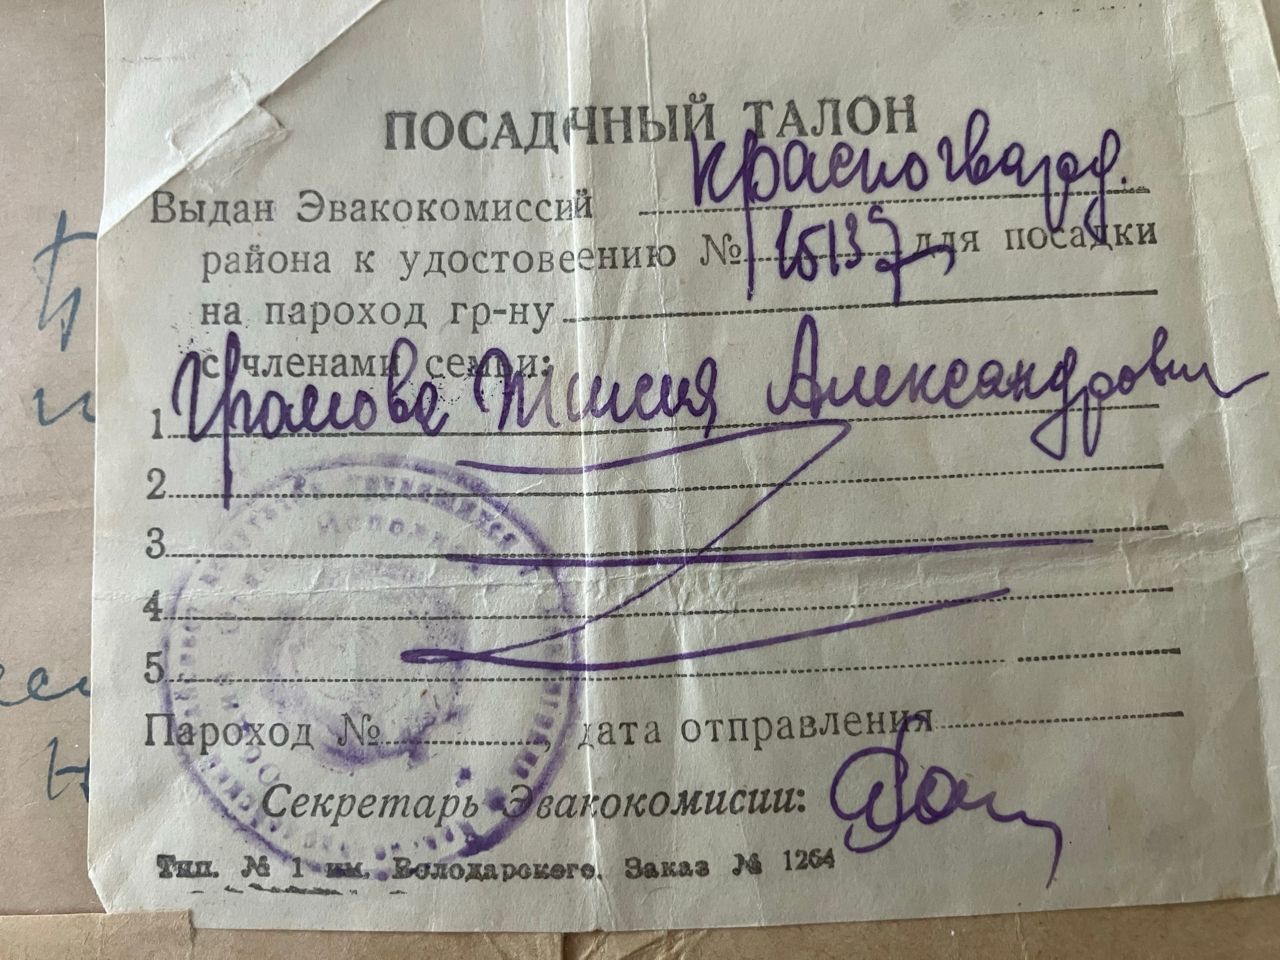 ПОСАДОЧНЫЙ ТАЛОН
Выдан Эвакокомиссий Красногвард.
района к удостовеению № 15137 для посадки
на пароход гр-ну
с членами семьи:
1 Громова Таисия Александровн
2
3
4
5
Пароход № , дата отправления
Секретарь Эвакокомисии:
Тип. № 1 им. Володарского. Заказ № 1264